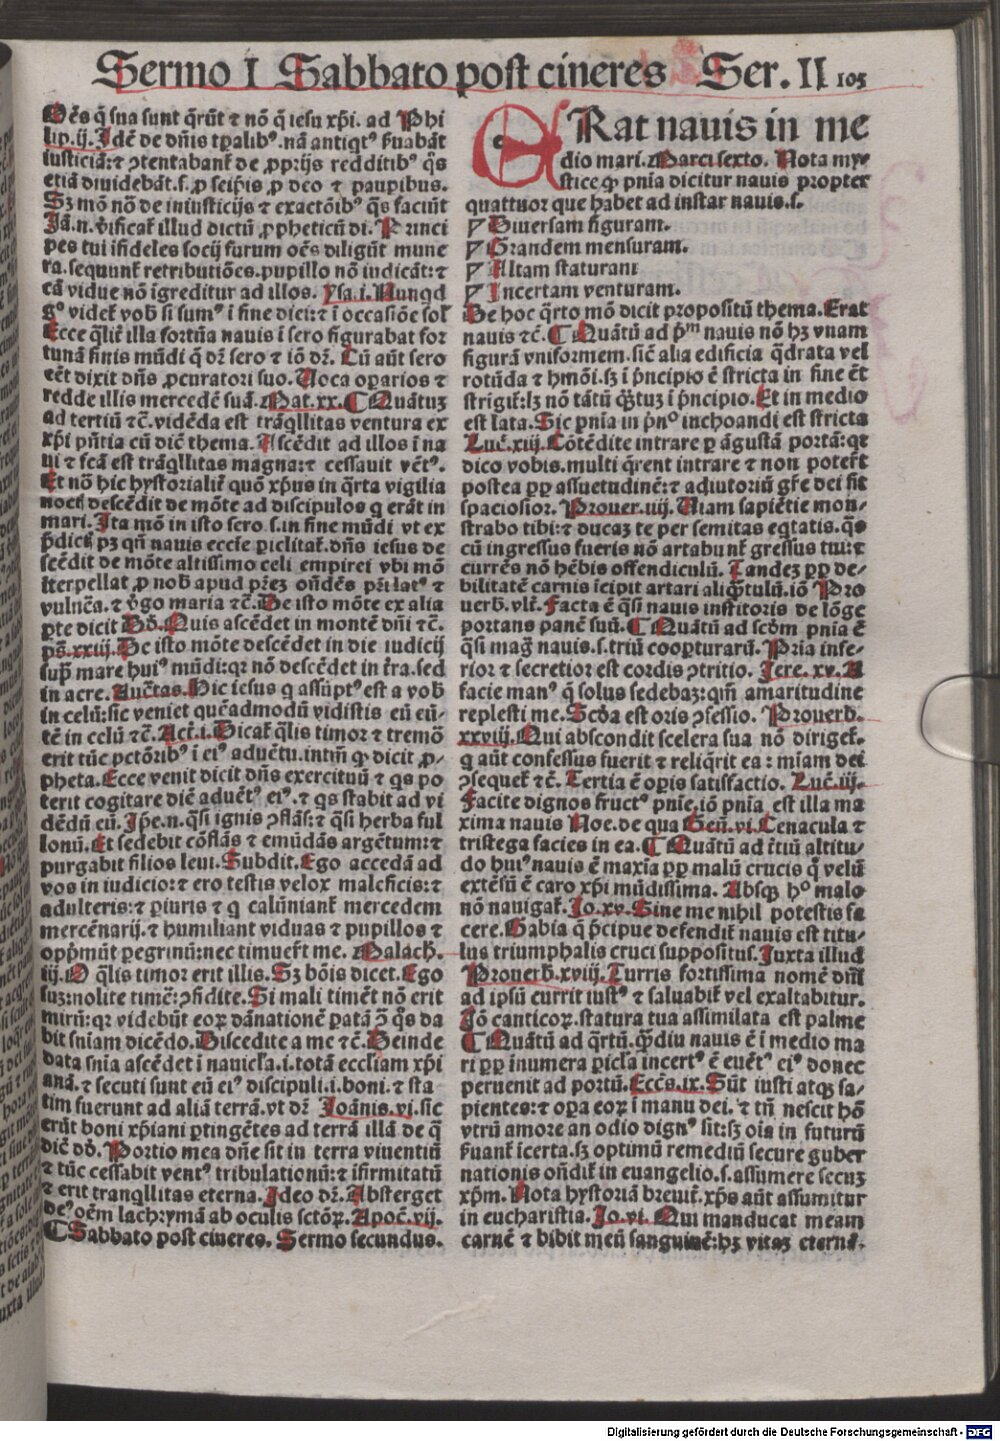 Sermo I Sabbato post cineres Ser. II 105
Oēs q̄ sua sunt q̄rūt ⁊ nō q̄ iesu xp̄i. ad Phi
lip.ij. Idē de dn̄is tp̄alibꝰ. nā antiqꝰ ẜuabāt
iusticiā:⁊ ꝯtentabanẗ de ꝓprijs redditibꝰ q̄s
etiā diuidebāt.s.ꝓ seip̄is ꝓ deo ⁊ pauꝑibus.
Sꝫ mō nō de iniusticijs ⁊ exactōibꝰ q̄s faciūt
Iā.n.v̄ificaẗ illud dictū ꝓpheticū di. Princi
pes tui ifideles socij furum oēs diligūt mune
ra.sequunẗ retributiōes.pupillo nō iudicāt:⁊
cā vidue nō īgreditur ad illos. Ysa.i. Nunqd
Ecce q̄liẗ illa fortūa nauis i sero figurabat for
tunā finis mūdi q̄ dr̄ sero ⁊ iō dr̄. Cū aūt sero
eēt dixit dn̄s ꝓcuratori suo. Uoca oꝑarios ⁊
redde illis mercedē suā. Mat.xx. ¶ Quātuꝫ
ad tertiū ⁊c̄.vidēda est trāq̄llitas ventura ex
xp̄i pn̄tia cū dic̄ thema. Ascēdit ad illos ī na
ui ⁊ fcā est trāq̄llitas magna:⁊ cessauit vētꝰ.
Et nō hic hystorialiẗ quō xp̄us in q̄rta vigilia
noctꝭ descēdit de mōte ad discipulos q̄ erāt in
mari. Ita mō in isto sero.s.in fine mūdi vt ex
p̄dictꝭ pꝫ qn̄ nauis ecclīe ꝑiclitaẗ.dn̄s iesus de
scēdit de mōte altissimo celi empirei vbi mō
īterpellat ꝓ nob̄ apud pr̄eꝫ on̄dēs
vulnēa.⁊ v̄go maria ⁊c̄. De isto mōte ex alia
ꝑte dicit Dd̄. Quis ascēdet in montē dn̄i ⁊c̄.
ps̄.xxiij. De isto mōte descēdet in die iudicij
suꝑ mare huiꝰ mūdi:qꝛ nō descēdet in t̄ra.sed
in aere. Auc̄tas. Hic iesus q̄ assūptꝰ est a vob̄
in celū:sic veniet quēadmodū vidistis eū eū-
tē in celū ⁊c̄. Act̄.i. Dicaẗ q̄lis timor ⁊ tremō
erit tūc pctōribꝰ ī eiꝰ aduētu.intm̄ ꝙ dicit ꝓ-
pheta. Ecce venit dicit dn̄s exercituū ⁊ qs po
terit cogitare diē aduētꝰ eiꝰ.⁊ qs stabit ad vi
dēdū eū. Ip̄e.n.q̄si ignis ꝯflās:⁊ q̄si herba ful
lonū. Et sedebit cōflās ⁊ emūdās argētum:⁊
purgabit filios leui. Subdit. Ego accedā ad
vos in iudicio:⁊ ero testis velox maleficis:⁊
adulteris:⁊ ꝑiuris ⁊ q̄ calūnianẗ mercedem
mercēnarij.⁊ humiliant viduas ⁊ pupillos ⁊
opp̄mūt ꝑegrinū:nec timueẗ me. Malach̄.
iij. O q̄lis timor erit illis. Sꝫ bōis dicet. Ego
suꝫ:nolite timē:ꝯfidite. Si mali timēt nō erit
mirū:qꝛ videbūt eoꝝ dānationē
bit sniam dicēdo. Discedite a me ⁊c̄. Deinde
data snīa ascēdet ī nauicl̄a.i.totā ecclīam xp̄i
anā.⁊ secuti sunt eū eiꝰ discipuli.i.boni.⁊ sta
tim fuerunt ad aliā terrā.vt dr̄ Ioānis.vi.sic
erūt boni xp̄iani ꝑtingētes ad terrā illā de q̄
dic̄ dd̄. Portio mea dn̄e sit in terra viuentiū
⁊ tūc cessabit ventꝰ tribulationū:⁊ īfirmitatū
⁊ erit tranq̄llitas eterna. Ideo dr̄. Absterget
deꝰ oēm lachrymā ab oculis sctōꝝ. Apoc̄.vij.
¶ Sabbato post cineres. Sermo secundus.
ERat nauis in me
dio mari. Marci sexto. Nota my-
stice ꝙ pn̄ia dicitur nauis propter
quattuor que habet ad instar nauis.s.
Diuersam figuram.
Grandem mensuram.
Altam staturam
Incertam venturam.
De hoc q̄rto mō dicit propositū thema. Erat
nauis ⁊c̄. ¶ Quātū ad p̄m nauis nō hꝫ vnam
figurā vniformem.sic̄ alia edificia q̄drata vel
rotūda ⁊ hmōi.sꝫ ī p̄ncipio ē stricta in fine ēt
strigiẗ:lꝫ nō tātū q̄ꝫtuꝫ ī p̄ncipio. Et in medio
est lata. Sic pn̄ia in p̄nᵒ inchoandi est stricta
Luc̄.xiij. Cōtēdite intrare ꝑ āgustā portā:qꝛ
dico vobis.multi q̄rent intrare ⁊ non poteẗ
postea ꝓp assuetudinē:⁊ adiutoriū gr̄e dei fit
spaciosior. Prouer.iiij. Uiam sapiētie mon-
strabo tibi:⁊ ducaꝫ te per semitas eq̄tatis.q̄s
cū ingressus fueris nō artabunẗ gressus tui:⁊
currēs nō hēbis offendiculū. Tandeꝫ ꝓp de-
bilitatē carnis īcipit artari aliq̄ꝫtulū.iō Pro
uerb̄.vlt̄. Facta ē q̄si nauis institoris de lōge
portans panē suū. ¶ Quātū ad scd̄m pn̄ia ē
q̄si maḡ nauis.s.triū cooꝑturarū. Pria infe-
rior ⁊ secretior est cordis ꝯtritio. Iere.xv. A
facie manꝰ q̄ solus sedebaꝫ:qm̄ amaritudine
replesti me. Scd̄a est oris ꝯfessio. Prouerb̄.
xxviij. Qui abscondit scelera sua nō dirigeẗ.
q̄ aūt confessus fuerit ⁊ reliq̄rit ea : mīam dei
ꝯsequeẗ ⁊c̄. Tertia ē oꝑis satisfactio. Luc̄.iij.
Facite dignos fructꝰ pn̄ie.iō pn̄ia est illa ma
xima nauis Noe.de qua Gen̄.vi. Cenacula ⁊
tristega facies in ea. ¶ Quātū ad t̄tiū altitu-
do huiꝰ nauis ē maxīa ꝓp malū crucis q̄ velū
extēsū ē caro xp̄i mūdissima. Absqꝫ hᵒ malo
nō nauigaẗ. Io.xv. Sine me nihil potestis fa
cere. Gabia q̄ p̄cipue defendiẗ nauis est titu-
lus triumphalis cruci suppositus. Iuxta illud
Prouerb̄.xviij. Turris fortissima nomē dn̄i
ad ipsū currit iustꝰ ⁊ saluabiẗ vel exaltabitur.
Iō canticoꝝ.statura tua assimilata est palme
¶ Quātū ad q̄rtū.q̄ꝫdiu nauis ē ī medio ma
ri ꝓp īnumera ꝑicl̄a incertꝰ ē euētꝰ eiꝰ donec
peruenit ad portū. Ecc̄s.ix. Sūt iusti atqꝫ sa-
pientes:⁊ oꝑa eoꝝ ī manu dei.⁊ tn̄ nescit hō
vtrū amore an odio dignꝰ sit:sꝫ oīa in futurū
ẜuanẗ īcerta.sꝫ optimū remediū secure guber
nationis on̄diẗ in euangelio.s.assumere secuꝫ
xp̄m. Nota hystoriā breuiẗ.xp̄s aūt assumitur
in eucharistia. Io.vi. Qui manducat meam
carnē ⁊ bibit meū sanguinē:hꝫ vitaꝫ eternā.
Digitalisierung gefördert durch die Deutsche Forschungsgemeinschaft - DFG